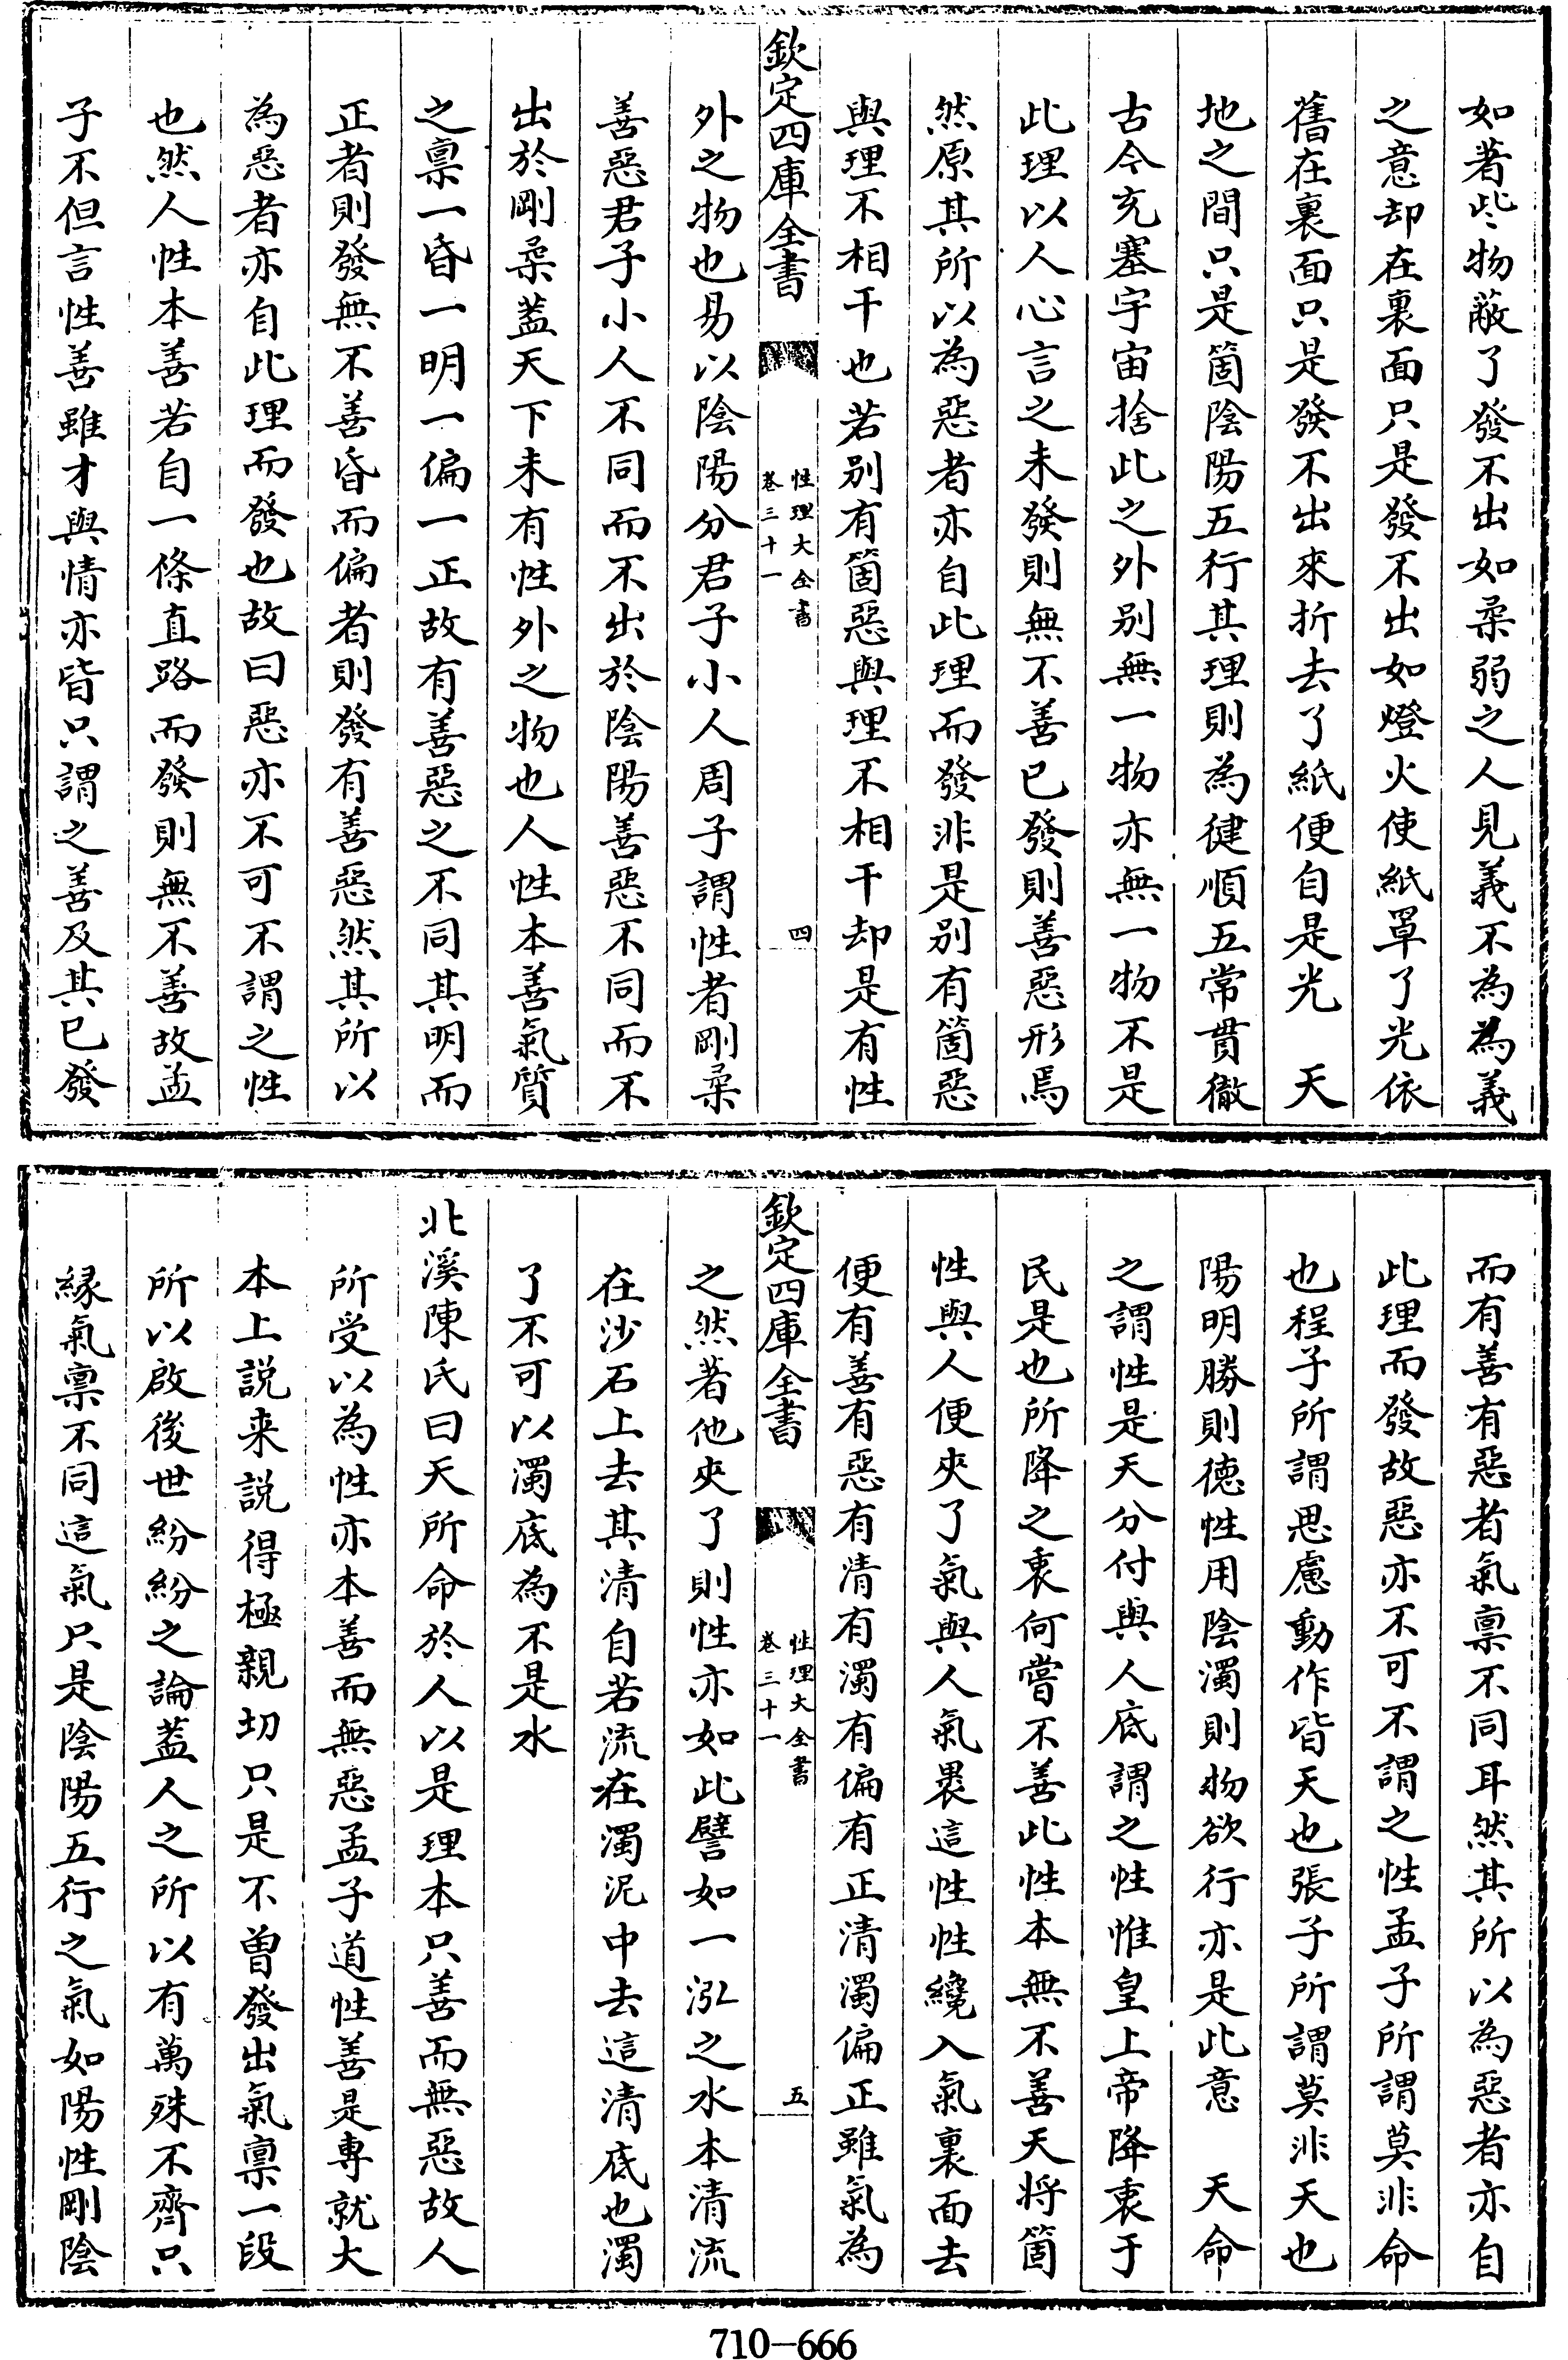 如著些物蔽了發不出如柔弱之人見義不為為義
之意却在裏面只是發不出如燈火使紙罩了光依
舊在裏面只是發不出來折去了紙便自是光　天
地之間只是箇陰陽五行其理則為健順五常貫徹
古今充塞宇宙捨此之外别無一物亦無一物不是
此理以人心言之未發則無不善已發則善惡形焉
然原其所以為惡者亦自此理而發非是别有箇惡
與理不相干也若别有箇惡與理不相干却是有性
欽定四庫全書
性理大全書
卷三十一
四
外之物也易以陰陽分君子小人周子謂性者剛柔
善惡君子小人不同而不出於陰陽善惡不同而不
出於剛柔蓋天下未有性外之物也人性本善氣質
之禀一昏一明一偏一正故有善惡之不同其明而
正者則發無不善昏而偏者則發有善惡然其所以
為惡者亦自此理而發也故曰惡亦不可不謂之性
也然人性本善若自一條直路而發則無不善故孟
子不但言性善雖才與情亦皆只謂之善及其已發
而有善有惡者氣禀不同耳然其所以為惡者亦自
此理而發故惡亦不可不謂之性孟子所謂莫非命
也程子所謂思慮動作皆天也張子所謂莫非天也
陽明勝則德性用陰濁則物欲行亦是此意　天命
之謂性是天分付與人底謂之性惟皇上帝降衷于
民是也所降之衷何嘗不善此性本無不善天將箇
性與人便夾了氣與人氣褁這性性纔入氣裏面去
便有善有惡有清有濁有偏有正清濁偏正雖氣為
欽定四庫全書
性理大全書
卷三十一
五
之然著他夾了則性亦如此譬如一泓之水本清流
在沙石上去其清自若流在濁泥中去這清底也濁
了不可以濁底為不是水
北溪陳氏曰天所命於人以是理本只善而無惡故人
所受以為性亦本善而無惡孟子道性善是專就大
本上説来説得極親切只是不曽發出氣禀一段
所以啟後世紛紛之論蓋人之所以有萬殊不齊只
緣氣禀不同這氣只是陰陽五行之氣如陽性剛陰
710-666